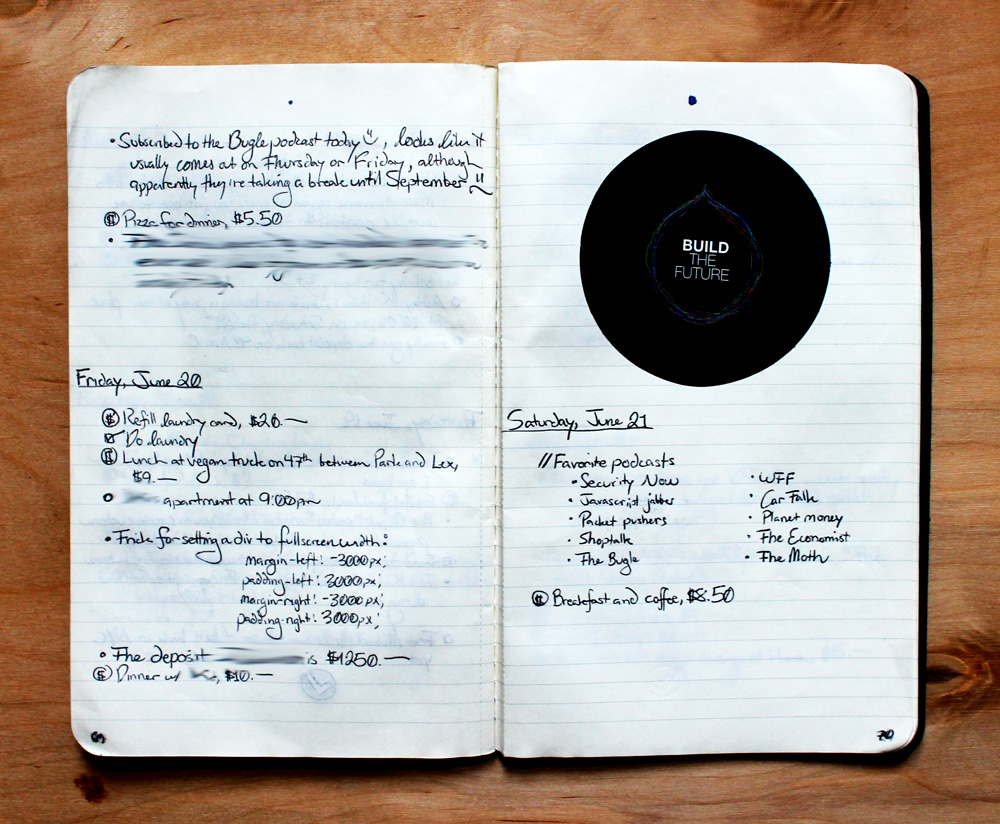 • Subscribed to the Bugle podcast today, looks like it
usually comes out on Thursday or Friday, although
apparently they're taking a break until September
$ Pizza for dinner, $5.50
Friday, June 20
$ Refill laundry card, $20.—
Do laundry
$ Lunch at vegan truck on 47th between Park and Lex,
$9.—
apartment at 9:00pm
• Trick for setting a div to fullscreen width:
margin-left: -3000px;
padding-left: 3000px;
margin-right: -3000px;
padding-right: 3000px;
• The deposit is $1250.—
$ Dinner w/ , $10.—
69
BUILD
THE
FUTURE
Saturday, June 21
// Favorite podcasts
• Security Now
• Javascript jabber
• Packet pushers
• Shoptalk
• The Bugle
• WTF
• Car Talk
• Planet money
• The Economist
• The Moth
$ Breakfast and coffee, $8.50
70